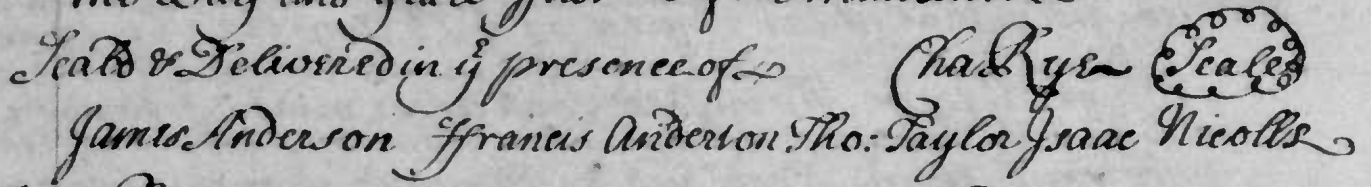 Seald & Delivered in ye presence of Cha Rye Seale
James Anderson ffrancis Anderton Tho: Taylor Isaac Nicolls